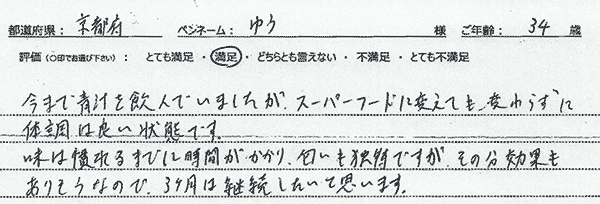 都道府県： 京都府 ペンネーム： ゆう 様 ご年齢： 34 歳
評価（○印でお選び下さい）： とても満足 ・ 満足 ・ どちらとも言えない ・ 不満足 ・ とても不満足
今まで青汁を飲んでいましたが、スーパーフードに変えても、変わらずに
体調は良い状態です。
味は慣れるまでに時間がかかり、匂いも独特ですが、その分効果も
ありそうなので、3ヶ月は継続したいて思います。